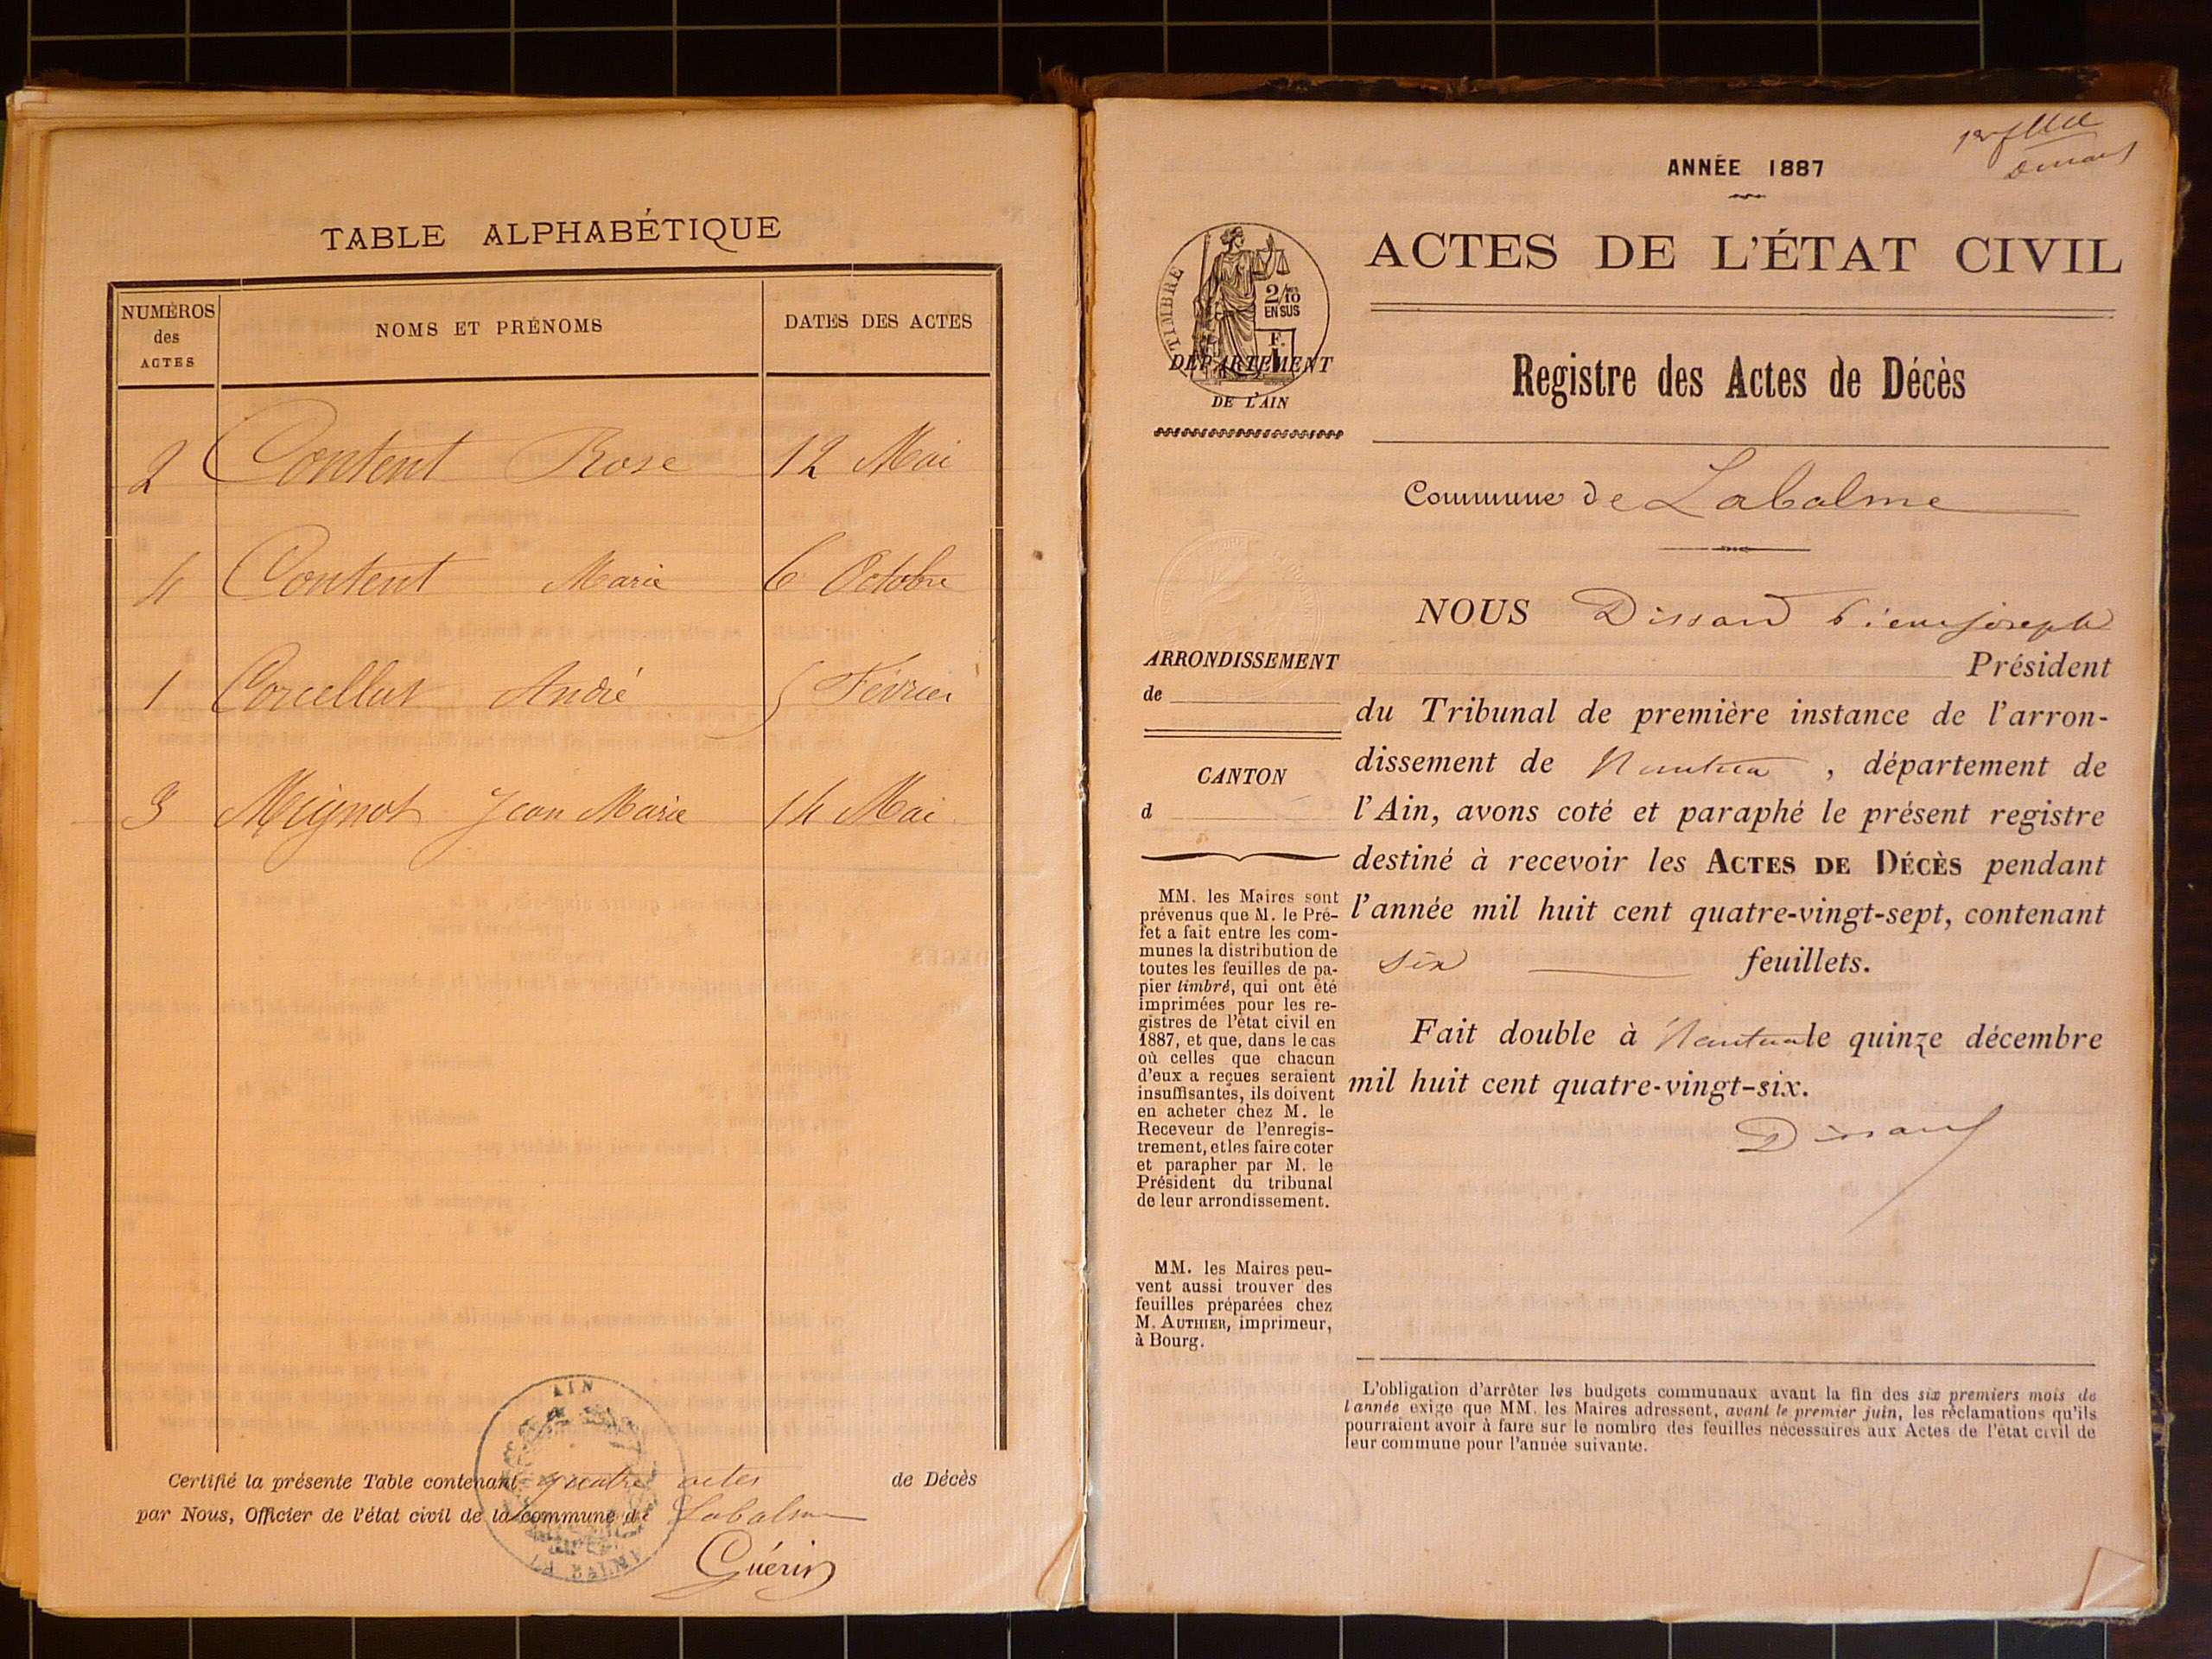 TABLE ALPHABÉTIQUE
NUMÉROS
des
ACTES
NOMS ET PRÉNOMS
DATES DES ACTES
2 Content Rose 12 Mai
4 Content Marie 6 Octobre
1 Corcellut André 5 Février
3 Mignot Jean Marie 14 Mai
Certifié la présente Table contenant quatre actes de Décès
par Nous, Officier de l'état civil de la commune de Labalme
Guérin
AIN
LA BALME
ANNÉE 1887
ACTES DE L'ÉTAT CIVIL
TIMBRE
2/10
EN SUS
F.
DÉPARTEMENT
DE L'AIN
Registre des Actes de Décès
Commune de Labalme
ARRONDISSEMENT
de
CANTON
d
MM. les Maires sont
prévenus que M. le Pré-
fet a fait entre les com-
munes la distribution de
toutes les feuilles de pa-
pier timbré, qui ont été
imprimées pour les re-
gistres de l'état civil en
1887, et que, dans le cas
où celles que chacun
d'eux a reçues seraient
insuffisantes, ils doivent
en acheter chez M. le
Receveur de l'enregis-
trement, et les faire coter
et parapher par M. le
Président du tribunal
de leur arrondissement.
MM. les Maires peu-
vent aussi trouver des
feuilles préparées chez
M. AUTHIER, imprimeur,
à Bourg.
NOUS Dissard Pierre joseph
Président
du Tribunal de première instance de l'arron-
dissement de Nantua, département de
l'Ain, avons coté et paraphé le présent registre
destiné à recevoir les ACTES DE DÉCÈS pendant
l'année mil huit cent quatre-vingt-sept, contenant
six feuillets.
Fait double à Nantua le quinze décembre
mil huit cent quatre-vingt-six.
Dissard
L'obligation d'arrêter les budgets communaux avant la fin des six premiers mois de
l'année exige que MM. les Maires adressent, avant le premier juin, les réclamations qu'ils
pourraient avoir à faire sur le nombre des feuilles nécessaires aux Actes de l'état civil de
leur commune pour l'année suivante.